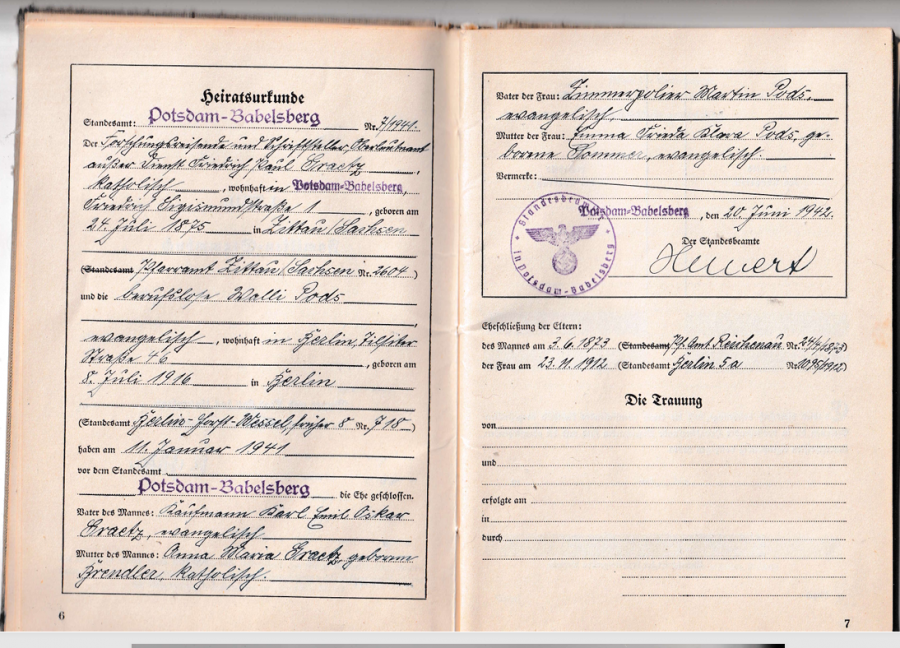 Heiratsurkunde
Standesamt: Potsdam-Babelsberg Nr. 7/1941.
Der Forschungsreisende und Schriftsteller, Oberleutnant
außer Dienst Friedrich Paul Graetz,
katholisch, wohnhaft in Potsdam-Babelsberg,
Friedrich Sigismundstraße 1, geboren am
24. Juli 1875 in Zittau/Sachsen
(Standesamt Pfarramt Zittau/Sachsen Nr. 2604)
und die berufslose Welli Pods
evangelisch, wohnhaft in Berlin, Tilsiter
Straße 46, geboren am
5. Juli 1916 in Berlin
(Standesamt Berlin-Horst-Wessel, früher 8 Nr. 718)
haben am 11. Januar 1941
vor dem Standesamt
Potsdam-Babelsberg die Ehe geschlossen.
Vater des Mannes: Kaufmann Karl Emil Oskar
Graetz, evangelisch
Mutter des Mannes: Anna Maria Graetz, geborene
Brendler, katholisch.
6
Vater der Frau: Zimmerpolier Martin Pods,
evangelisch
Mutter der Frau: Emma Frieda Klara Pods, ge-
borene Sommer, evangelisch.
Vermerke:
Potsdam-Babelsberg, den 20. Juni 1942.
Standesbeamter
in Potsdam-Babelsberg
Der Standesbeamte
Eheschließung der Eltern:
des Mannes am 3.6.1873 (Standesamt Pf. Amt Reichenau Nr. /1873)
der Frau am 23.11.1912 (Standesamt Berlin 5a Nr. 1095/1912)
Die Trauung
von
und
erfolgte am
in
durch
7